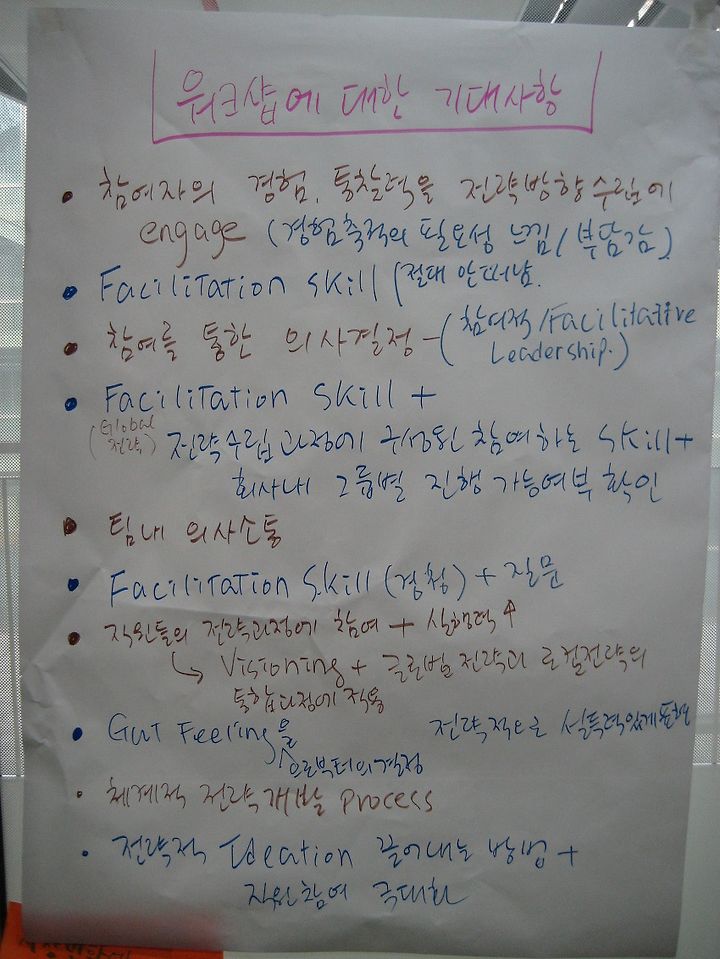 워크샵에 대한 기대사항
• 참여자의 경험, 통찰력을 전략방향수립에
engage (경험축적의 필요성 느낌/부담감)
• Facilitation skill (절대 안떠남.
• 참여를 통한 의사결정 - (참여적/Facilitative
Leadership.)
• Facilitation skill +
(Global
전략) 전략수립과정에 구성원 참여하는 skill +
회사내 그룹별 진행 가능여부 확인
• 팀내 의사소통
• Facilitation skill (경청) + 질문
• 직원들의 전략과정에 참여 + 실행력↑
↳ Visioning + 글로벌 전략과 로컬전략의
통합과정에 적용
• Gut Feeling을 전략적으로 설득력있게
으로부터의 결정
• 체계적 전략개발 process
• 전략적 Ideation 끌어내는 방법 +
직원참여 극대화